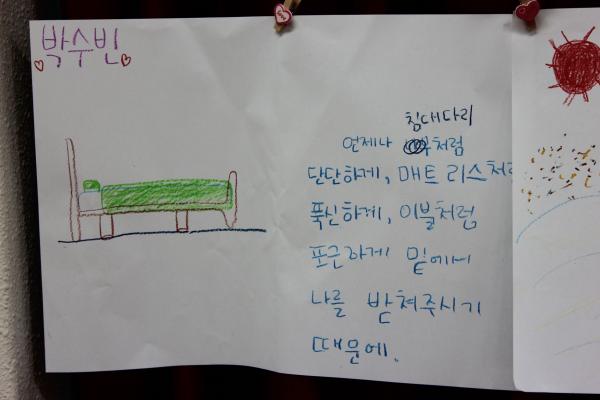 박수빈
침대다리
언제나 처럼
단단하게, 매트리스처럼
푹신하게, 이불처럼
포근하게 밑에서
나를 받쳐주시기
때문에.